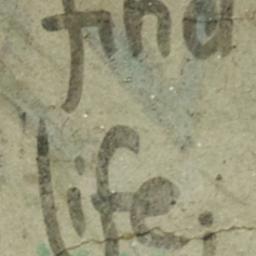 find
life.